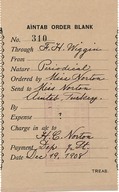 AINTAB ORDER BLANK
No. 310
Through F. H. Wiggin
From
Nature Periodical
Ordered by Miss Norton
Send to Miss Norton
Aintab, Turkey
By
Expense ?
Charge in a/c to
H. C. Norton
Payment
Date Dec 19, 1908
TREAS.